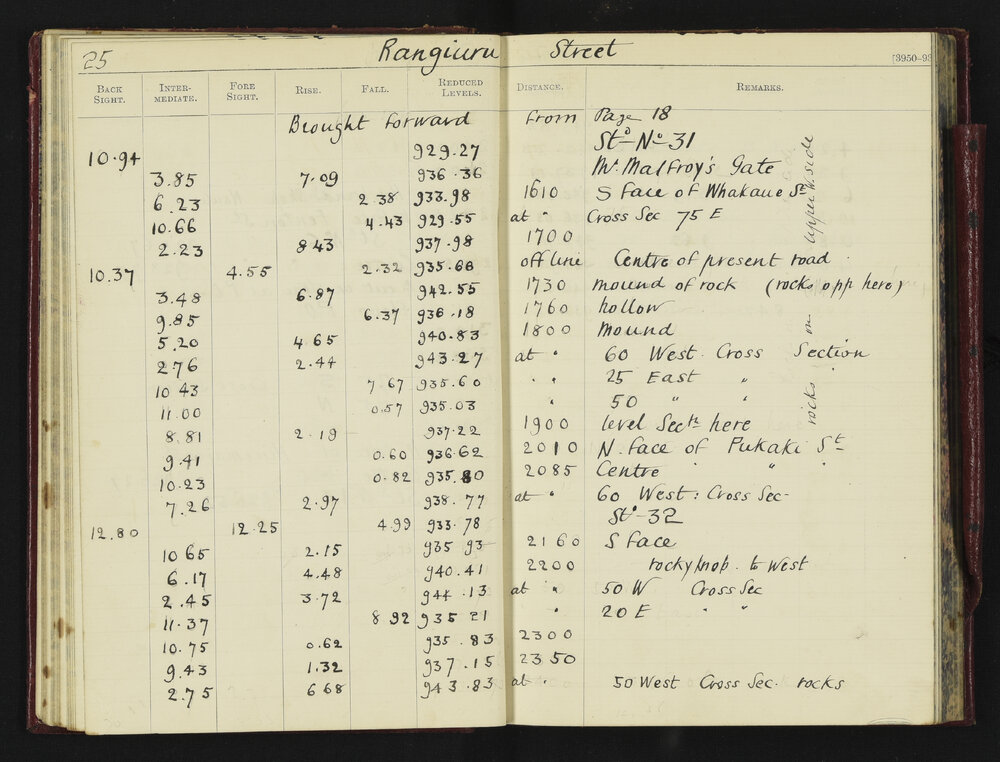 25 Rangiuru Street [3950-93
BACK SIGHT. INTER-MEDIATE. FORE SIGHT. RISE. FALL. REDUCED LEVELS. DISTANCE. REMARKS.
Brought forward from Page 18
10.94 929.27 St:n No 31
3.85 7.09 936.36 Mr Malfroy's Gate
6.23 2.38 933.98 1610 S face of Whakaue St
10.66 4.43 929.55 at " Cross Sec 75 E
2.23 8.43 937.98 1700
10.37 4.55 2.32 935.66 off line Centre of present road
3.48 6.87 942.55 1730 mound of rock (rocks opp here)
9.85 6.37 936.18 1760 hollow
5.20 4.65 940.83 1800 Mound
2.76 2.44 943.27 at " 60 West. Cross Section
10.43 7.67 935.60 " " 25 East "
11.00 0.57 935.03 " 50 " "
8.81 2.19 937.22 1900 level Sectn here
9.41 0.60 936.62 2010 N. face of Pukaki St
10.23 0.82 935.80 2085 Centre " "
7.26 2.97 938.77 at " 60 West: Cross Sec-
12.80 12.25 4.99 933.78 Stn 32
10.65 2.15 935.93 2160 S face
6.17 4.48 940.41 2200 rocky knob. to West
2.45 3.72 944.13 at " 50 W Cross Sec
11.37 8.92 935.21 " 20 E " "
10.75 0.62 935.83 2300
9.43 1.32 937.15 2350
2.75 6.68 943.83 at " 50 West Cross Sec. rocks
rocks on upper W. side